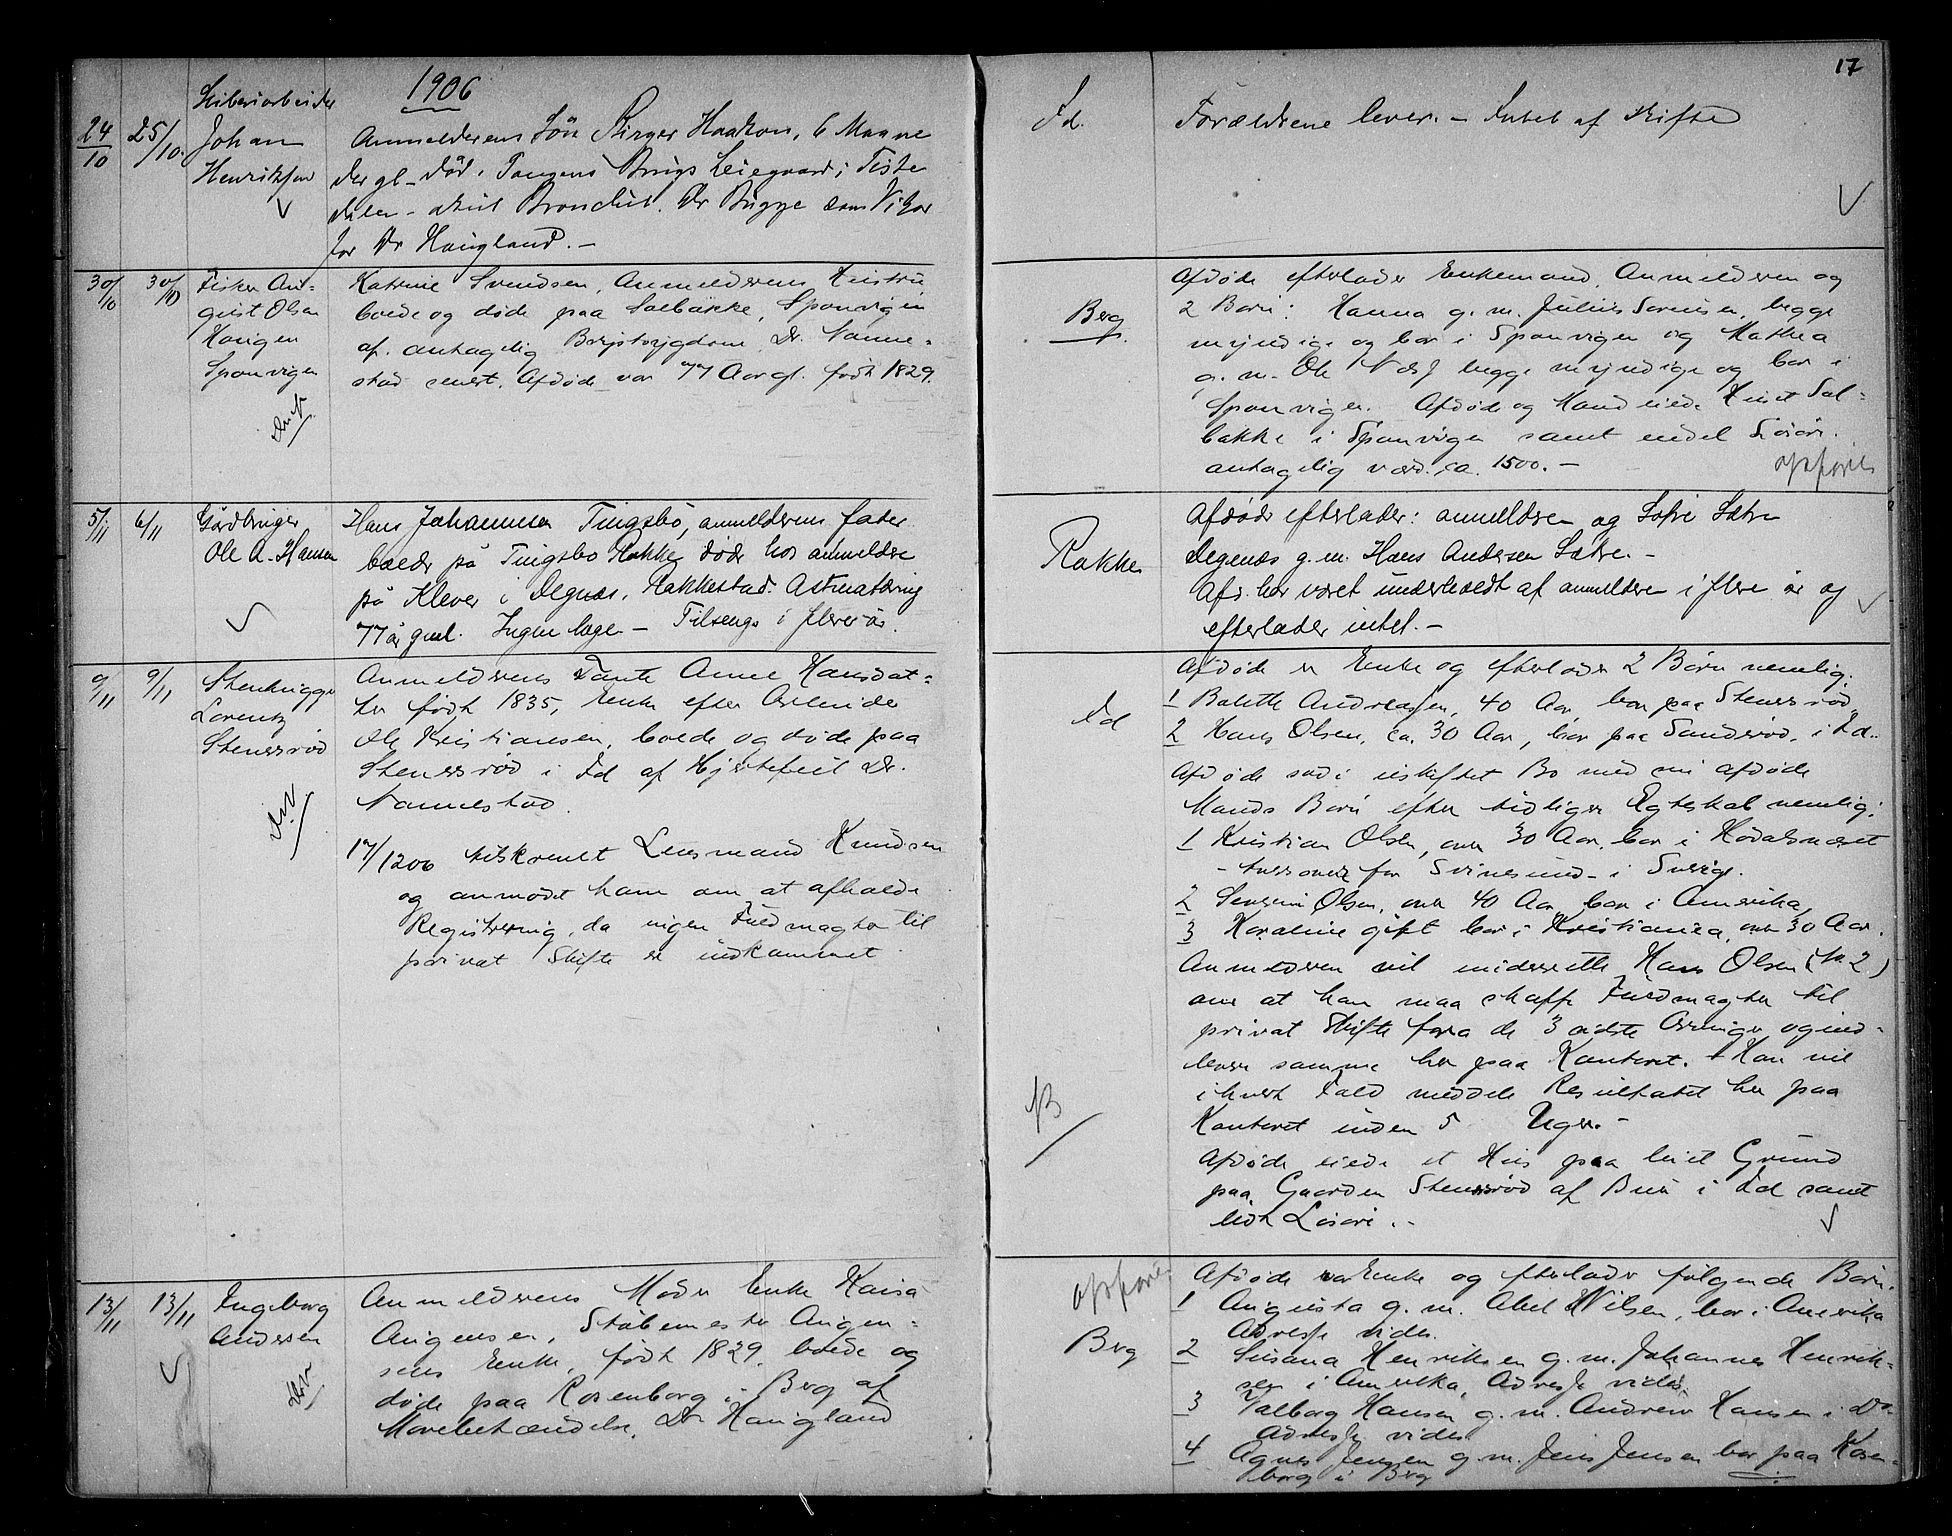 1906
17
24/10
25/10.
Johan
Henriksen
Anmelderens Søn Birger Haakon, 6 Maane
der gl. død i Tangens Brugs Leiegaard i Tiste
dalen - akut Bronchit. Dr Bugge som Vikar
for Dr Haugland. -
Id.
Forældrene lever. - Intet af Skifte
30/10
30/10
Fisker Au-
gust Olsen
Haugen
Sponvigen
Katrine Svendsen, Anmelderens Hustru
boede og døde paa Solbakke, Sponvigen
af antagelig Brystsygdom. Dr. Nanne-
stad senest. Afdøde var 77 Aar gl. født 1829.
Berg
Afdøde efterlader Enkemand, Anmelderen og
2 Børn: Hanna g. m. Julius Sørensen, begge
myndige og bor i Sponvigen og Mathea
g. m. Ole Næss begge myndige og bor i
Sponvigen. Afdøde og Mand eiede Huset Sol-
bakke i Sponvigen samt endel Løsøre.
antagelig værd ca. 1500. -
opføres
5/11
6/11
Gårdbruger
Ole A. Hansen
Hans Johannesen Tingsbø, anmelderens fader
boede på Tingsbo Rakke, døde hos anmeldere
på Klever i Degnæs, Rakkestad. Astmatæring
77 år gml. Ingen læge - Tilsengs i flere år.
Rakke
Afdøde efterlader: anmelderen og Sofie Sætre
Degenæs g. m. Hans Andersen Sætre. -
Afd. har været underholdt af anmeldere i flere år og
efterlader intet. -
9/11
9/11
Stenhugger
Lorentz
Stensrød
Anmelderens Tante Anne Hansdat-
ter født 1835, Enke efter Arbeider
Ole Kristiansen, boede og døde paa
Stensrød i Id af Hjertefeil Dr.
Nannestad.
17/12 06 tilskrevet Lensmand Knudsen
og anmodet ham om at afholde
Registrering, da ingen Fuldmagter til
privat Skifte er indkommet
Id
Afdøde er Enke og efterlader 2 Børn nemlig:
1 Balette Andreasen, 40 Aar bor paa Stensrød
2 Hans Olsen, ca. 30 Aar, bor paa Sanderød, i Id.
Afdøde sad i uskiftet Bo med sin afdøde
Mands Børn efter tidligere Egteskab nemlig:
1 Kristian Olsen, over 30 Aar, bor i Hødalsnæset
- tvers over for Svinesund - i Sverige.
2 Severin Olsen, over 40 Aar bor i Amerika,
3 Karoline gift bor i Kristiania, over 30 Aar.
Anmelderen vil underrette Hans Olsen (No 2)
om at han maa skaffe Fuldmagter til
privat Skifte fra de 3 sidste Arvinger og ind-
levere samme her paa Kontoret. Han vil
ihvert Fald meddele Resultatet her paa
Kontoret inden 5 Uger. -
Afdøde eiede et Hus paa leiet Grund
paa Gaarden Stensrød af Buer i Id samt
lidt Løsøre. -
13/11
13/11
Ingeborg
Andersen
Anmelderens Moder Enke Kaisa
Augensen, Støbemester Augen-
sens Enke, født 1829, boede og
døde paa Rosenborg i Berg af
Mavebetændelse. Dr Haugland
opføres
Berg
Afdøde var Enke og efterlader følgende Børn.
1 Augusta g. m. Abel Nilsen, bor i Amerika
Adresse vides.
2 Susana Henriksen g. m. Johannes Henrik-
sen i Amerika, Adresse vides.
3 Valborg Hansen g. m. Andrew Hansen i Do
Adresse vides
4 Agnes Jensen g. m. Jens Jensen bor paa Rosen-
borg i Berg